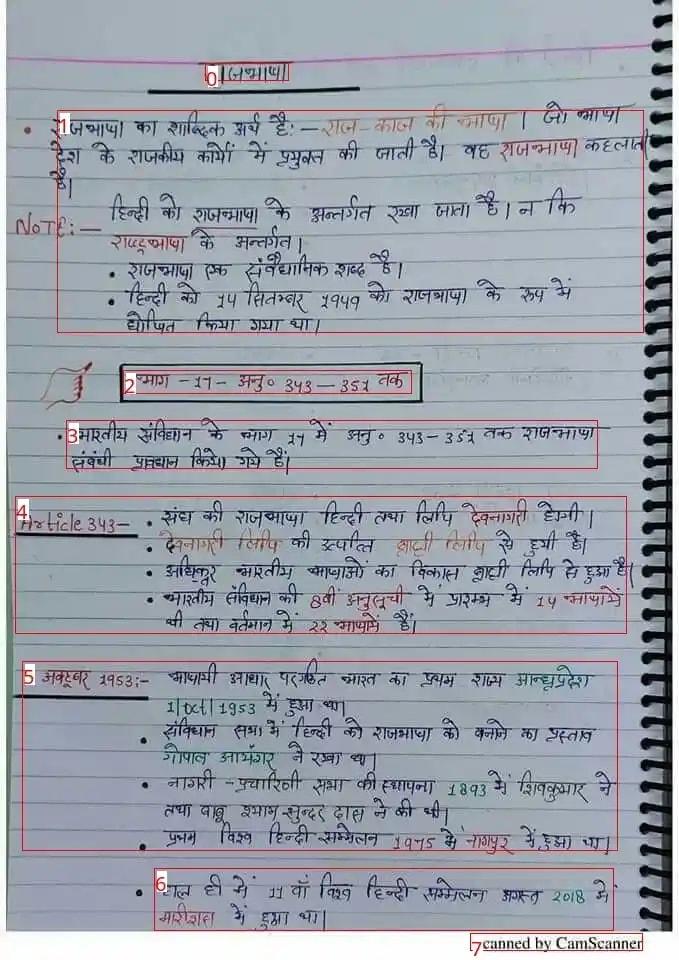 राजभाषा
• राजभाषा का शाब्दिक अर्थ है:- राज-काज की भाषा । जो भाषा
देश के राजकीय कार्यों में प्रयुक्त की जाती है। वह राजभाषा कहलाती
है।
NOTE:- हिन्दी को राजभाषा के अन्तर्गत रखा जाता है। न कि
राष्ट्रभाषा के अन्तर्गत।
• राजभाषा एक संवैधानिक शब्द है।
• हिन्दी को 14 सितम्बर 1949 को राजभाषा के रूप में
घोषित किया गया था।
भाग - 17 - अनु० 343 - 351 तक
• भारतीय संविधान के भाग 17 में अनु० 343-351 तक राजभाषा
संबंधी प्रावधान किये गये हैं।
Article 343- • संघ की राजभाषा हिन्दी तथा लिपि देवनागरी होगी।
• देवनागरी लिपि की उत्पत्ति ब्राह्मी लिपि से हुयी है।
• अधिकतर भारतीय भाषाओं का विकास ब्राह्मी लिपि से हुआ है।
• भारतीय संविधान की 8वीं अनुसूची में प्रारम्भ में 14 भाषायें
थी तथा वर्तमान में 22 भाषायें हैं।
अक्टूबर 1953:- भाषायी आधार पर गठित भारत का प्रथम राज्य आन्ध्रप्रदेश
1|Oct|1953 में हुआ था।
• संविधान सभा में हिन्दी को राजभाषा को बनाने का प्रस्ताव
गोपाल आयंगर ने रखा था।
• नागरी - प्रचारिणी सभा की स्थापना 1893 में शिवकुमार ने
तथा बाबू श्याम सुन्दर दास ने की थी।
• प्रथम विश्व हिन्दी सम्मेलन 1975 में नागपुर में हुआ था।
• हाल ही में 11 वाँ विश्व हिन्दी सम्मेलन अगस्त 2018 में
मारीशस में हुआ था।
canned by CamScanner